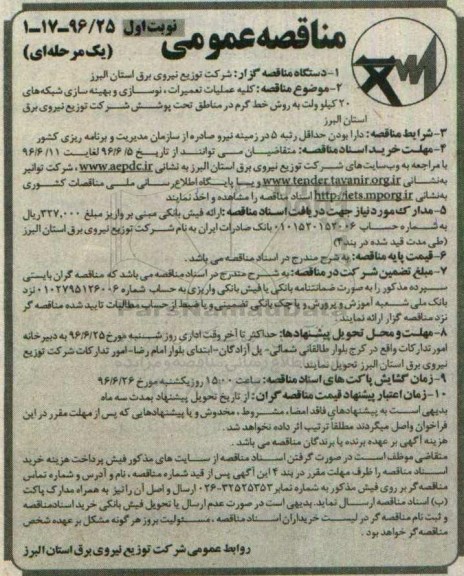 مناقصه عمومی
نوبت اول ۹۶/۲۵-۱۷-۱
(یک مرحله‌ای)
۱-دستگاه مناقصه گزار: شرکت توزیع نیروی برق استان البرز
۲-موضوع مناقصه: کلیه عملیات تعمیرات، نوسازی و بهینه سازی شبکه‌های
۲۰ کیلو ولت به روش خط گرم در مناطق تحت پوشش شرکت توزیع نیروی برق
استان البرز
۳-شرایط مناقصه: دارا بودن حداقل رتبه ۵ در زمینه نیرو صادره از سازمان مدیریت و برنامه ریزی کشور
۴-مهلت خرید اسناد مناقصه: متقاضیان می توانند از تاریخ ۹۶/۶/۵ لغایت ۹۶/۶/۱۱
با مراجعه به وب‌سایت‌های شرکت توزیع نیروی برق استان البرز به نشانی www.aepdc.ir، شرکت توانیر
به‌نشانی www.tender.tavanir.org.ir و یا پایگاه اطلاع رسانی ملی مناقصات کشوری
به‌نشانی http://iets.mporg.ir اسناد مناقصه را مشاهده و اخذ نمایند
۵-مدارک مورد نیاز جهت دریافت اسناد مناقصه: ارائه فیش بانکی مبنی بر واریز مبلغ ۳۳۷،۰۰۰ ریال
به شماره حساب ۰۱۰۱۵۲۰۱۵۲۰۰۶ بانک صادرات ایران به نام شرکت توزیع نیروی برق استان البرز
(طی مدت قید شده در بند ۴)
۶-قیمت پایه مناقصه: به شرح مندرج در اسناد مناقصه می باشد.
۷-مبلغ تضمین شرکت در مناقصه: به شرح مندرج در اسناد مناقصه می باشد که مناقصه گران بایستی
سپرده مذکور را به صورت ضمانتنامه بانکی یا فیش بانکی واریزی به حساب شماره ۰۱۰۲۷۹۵۱۲۶۰۰۶ نزد
بانک ملی شعبه آموزش و پرورش و یا چک بانکی تضمینی و یا ضبط از حساب مطالبات تایید شده مناقصه گر
نزد مناقصه گزار ارائه نمایند.
۸-مهلت و محل تحویل پیشنهادها: حداکثر تا آخر وقت اداری روز شنبه مورخ ۹۶/۶/۲۵ به دبیرخانه
امور تدارکات واقع در کرج بلوار طالقانی شمالی- پل آزادگان-ابتدای بلوار امام رضا-امور تدارکات شرکت توزیع
نیروی برق استان البرز تحویل نمایند
۹-زمان گشایش پاکت های اسناد مناقصه: ساعت ۱۵:۰۰ روز یکشنبه مورخ ۹۶/۶/۲۶
۱۰-زمان اعتبار پیشنهاد قیمت مناقصه گران: از تاریخ تحویل پیشنهاد بمدت سه ماه
بدیهی است به پیشنهادهای فاقد امضاء، مشروط، مخدوش و یا پیشنهادهایی که پس از مهلت مقرر در این
فراخوان واصل میگردند مطلقا ترتیب اثر داده نخواهد شد.
هزینه آگهی بر عهده برنده یا برندگان مناقصه می باشد.
متقاضی موظف است در صورت گرفتن اسناد مناقصه از سایت های مذکور فیش پرداخت هزینه خرید
اسناد مناقصه را ظرف مهلت مقرر در بند ۴ این آگهی پس از قید شماره مناقصه، نام و آدرس و شماره تماس
مناقصه گر بر روی فیش مذکور به شماره نمابر ۳۲۵۲۵۳۵۳-۰۲۶ ارسال و اصل آن را نیز به همراه مدارک پاکت
(ب) اسناد مناقصه ارسال نماید. بدیهی است در صورت عدم ارسال یا تحویل فیش بانکی خرید اسناد مناقصه
و ثبت نام مناقصه گر در لیست خریداران اسناد مناقصه، مسئولیت بروز هر گونه مشکل بر عهده شخص
مناقصه گر خواهد بود.
روابط عمومی شرکت توزیع نیروی برق استان البرز